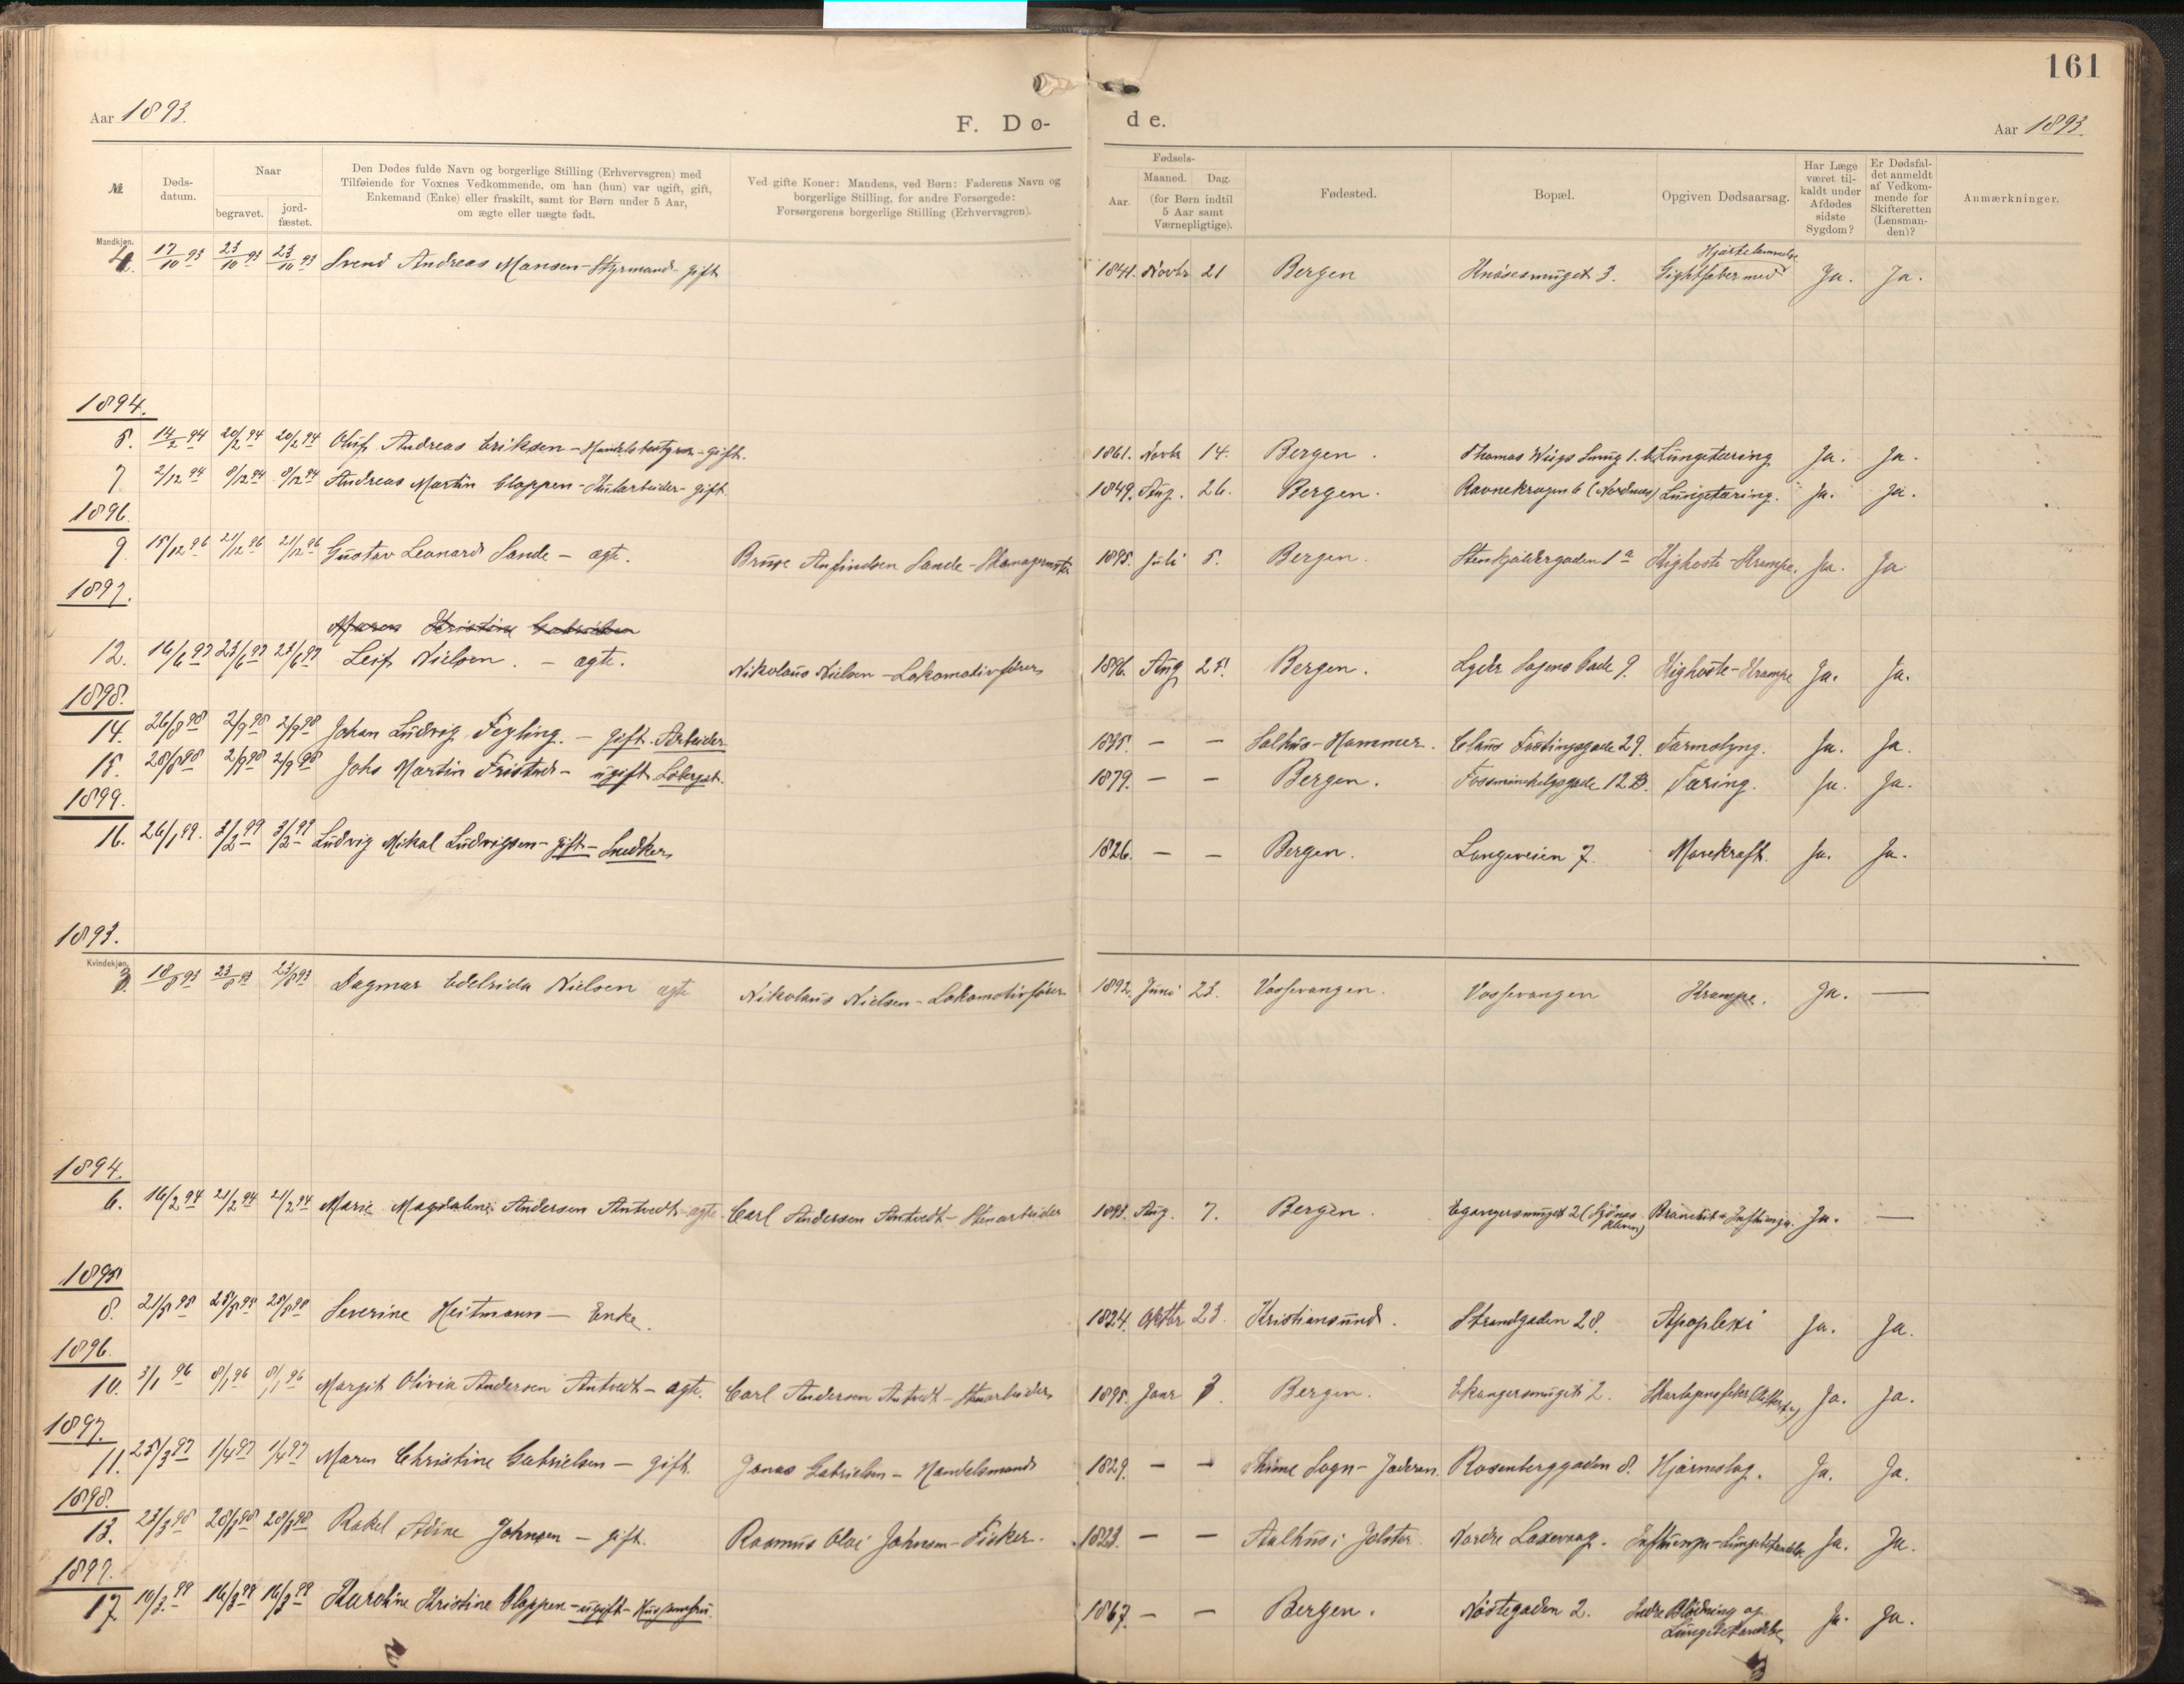 161
Aar 1893.
F. Dø-
de.
Aar 1893.
№
Døds-
datum.
Naar
begravet.
jord-
fæstet.
Den Dødes fulde Navn og borgerlige Stilling (Erhvervsgren) med
Tilføiende for Voxnes Vedkommende, om han (hun) var ugift, gift,
Enkemand (Enke) eller fraskilt, samt for Børn under 5 Aar,
om ægte eller uægte født.
Ved gifte Koner: Mandens, ved Børn: Faderens Navn og
borgerlige Stilling, for andre Forsørgede:
Forsørgerens borgerlige Stilling (Erhvervsgren).
Fødsels-
Aar.
Maaned.
Dag.
(for Børn indtil
5 Aar samt
Værnepligtige).
Fødested.
Bopæl.
Opgiven Dødsaarsag.
Har Læge
været til-
kaldt under
Afdødes
sidste
Sygdom?
Er Dødsfal-
det anmeldt
af Vedkom-
mende for
Skifteretten
(Lensman-
den)?
Anmærkninger.
Mandkjøn.
4. 17/10 93 23/10 93 23/10 93 Svend Andreas Hansen - Styrmand - gift 1841. Novbr 21 Bergen Knøsesmuget 3. Gigtfeber med Ja. Ja.
1894.
5. 14/2 94 20/2 94 20/2 94 Oluf Andreas Eriksen - gift. 1861. Novbr 14. Bergen. Thomas Wiigs Smug 1. b. Lungetæring Ja. Ja.
7 2/12 94 8/12 94 8/12 94 Andreas Martin Gloppen - gift 1849. Aug. 26. Bergen. Ravnekrogen 6 (Nordnæs) Lungetæring. Ja. Ja.
1896.
9. 15/12 96 21/12 96 21/12 96 Gustav Leonard Sande - ægte. Bruse Anfindsen Sande - Skomagermester 1895. Juli 5. Bergen. Stenkjældergaden 1 a Kighoste - Krampe. Ja. Ja
1897.
Maren Kristine Gabrielsen
12. 16/6 97 23/6 97 23/6 97 Leif Nielsen. - ægte. Nikolaus Nielsen - Lokomotivfører 1896. Aug 25. Bergen. Lyder Sagens Gade 9. Kighoste - Krampe Ja. Ja.
1898.
14. 26/8 98 2/9 98 2/9 98 Johan Ludvig Tegling. - gift. Arbeider 1835. — — Salhus - Hammer. Claus Fastingsgade 29. Tarmslyng. Ja. Ja.
15. 28/8 98 2/9 98 2/9 98 Johs Martin Fristad - ugift. 1879. — — Bergen. Fosswinckelsgade 12 B. Tæring. Ja. Ja.
1899.
16. 26/1 99. 3/2 99 3/2 99 Ludvig Mikal Ludvigsen - gift - Snedker 1826. — — Bergen. Langeveien 7. Mavekræft. Ja. Ja.
1893.
Kvindekjøn.
3. 18/8 93 23/8 93 23/8 93 Dagmar Edelrida Nielsen ægte Nikolaus Nielsen - Lokomotivfører 1892. Juni 23. Vossevangen. Vossevangen Krampe. Ja. —
1894.
6. 16/2 94 21/2 94 21/2 94 Marie Magdalene Andersen Antvedt - ægte. Carl Andersen Antvedt - Stenarbeider 1893. Aug. 7. Bergen. Egangersmuget 2 Bronchit - Influenza. Ja. —
1895
8. 21/8 95 25/8 95 25/8 95 Severine Heitmann - Enke. 1824. Oktbr 23. Kristiansund. Strandgaden 28. Apoplexi Ja. Ja.
1896.
10. 3/1 96 8/1 96 8/1 96 Margit Olivia Andersen Antvedt - ægte. Carl Andersen Antvedt - Stenarbeider 1895. Janr 3. Bergen. Ekangersmuget 2. Skarlagensfeber Ja. Ja.
1897.
11. 25/3 97 1/4 97 1/4 97 Maren Christine Gabrielsen - gift. Jonas Gabrielsen - Handelsmand 1829. — — Thime Sogn - Jæderen. Rosenberggaden 8. Hjerneslag. Ja. Ja.
1898.
13. 23/3 98 28/3 98 28/3 98 Rakel Adine Johnsen - gift. Rasmus Olai Johnsen - Fisker. 1823. — — Aalhus i Jølster. Nordre Laxevaag. Influenza - Lungebetændelse Ja. Ja.
1899.
17 10/3 99 16/3 99 16/3 99 Karoline Kristine Gloppen - ugift - 1867. — — Bergen. Nøstegaden 2. Indre Blødning og Ja. Ja.
Lungebetændelse